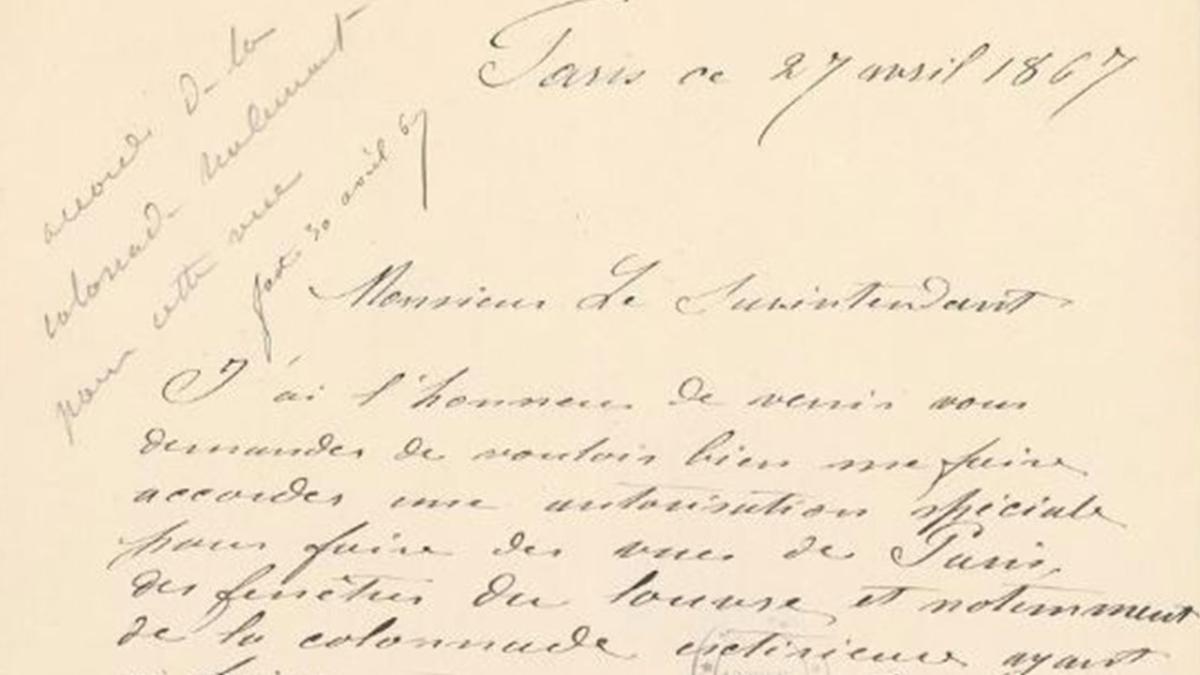 Paris ce 27 avril 1867
accordé De la
colonnade seulement
pour cette vue
fait 30 avril 67
Monsieur Le Surintendant
J'ai l'honneur de venir vous
demander de vouloir bien me faire
accorder une autorisation spéciale
pour faire des vues de Paris,
des fenêtres du louvre et notamment
de la colonnade extérieure ayant